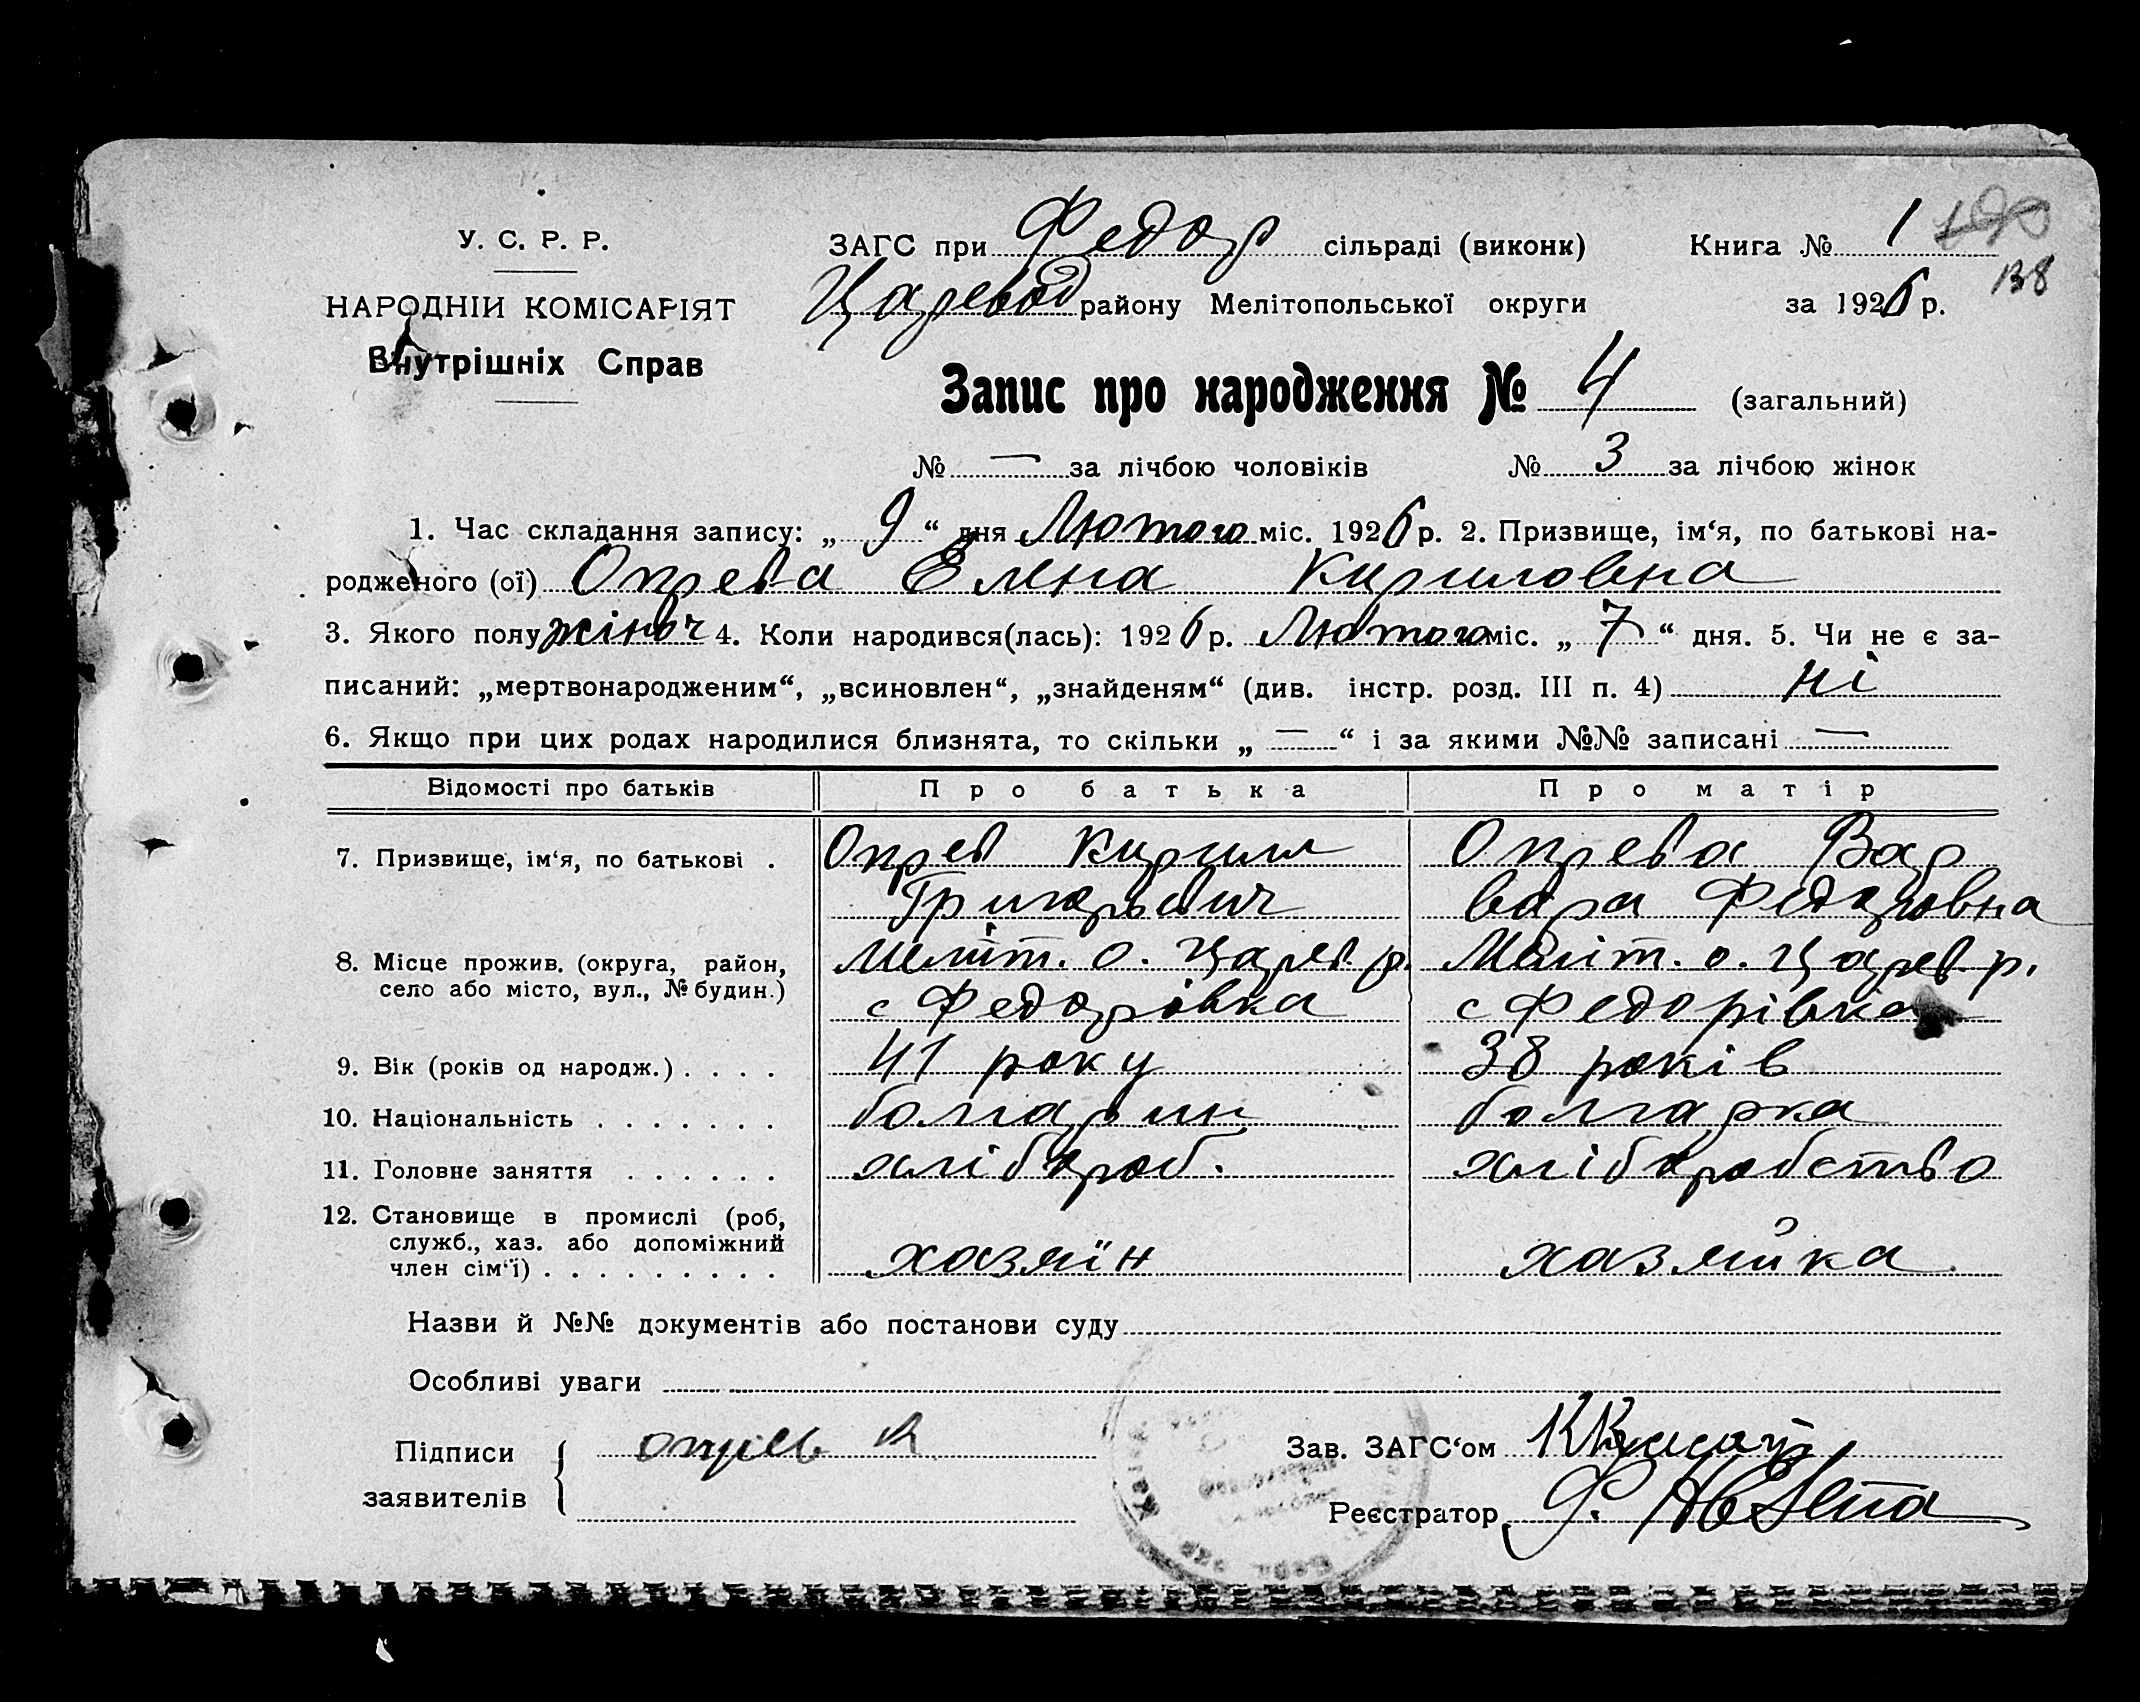 У. С. Р. Р.
НАРОДНІЙ КОМІСАРІЯТ
Внутрішніх Справ
ЗАГС при Федор сільраді (виконк) Книга № 1
Царевод району Мелітопольської округи за 1926 р. 138
Запис про народження № 4 (загальний)
№ — за лічбою чоловіків № 3 за лічбою жінок
1. Час складання запису: „ 9 “ дня Лютого міс. 1926 р. 2. Призвище, ім‘я, по батькові на-
родженого (ої) Опрева Елена Кириловна
3. Якого полу жіноч 4. Коли народився(лась): 1926 р. Лютого міс. „ 7 “ дня. 5. Чи не є за-
писаний: „мертвонародженим“, „всиновлен“, „знайденям“ (див. інстр. розд. III п. 4) ні
6. Якщо при цих родах народилися близнята, то скільки „ — “ і за якими №№ записані —
Відомості про батьків Про батька Про матір
7. Призвище, ім‘я, по батькові . Опрев Кирилл Опрева Вар
Григорьевич вара Федоровна
8. Місце прожив. (округа, район, Меліт. о. Царев. р. Меліт. о. Царев р.
село або місто, вул., № будин.) с Федорівка с Федорівка
9. Вік (років од народж.) . . . . 41 року 38 років
10. Національність . . . . . . . болгарин болгарка
11. Головне заняття . . . . . . хлібороб. хліборобство
12. Становище в промислі (роб,
служб., хаз. або допоміжний
член сім‘ї) . . . . . . . . . хазяїн хазяйка
Назви й №№ документів або постанови суду
Особливі уваги
Підписи
заявителів опрев К
Зав. ЗАГС‘ом
Реєстратор Ф.